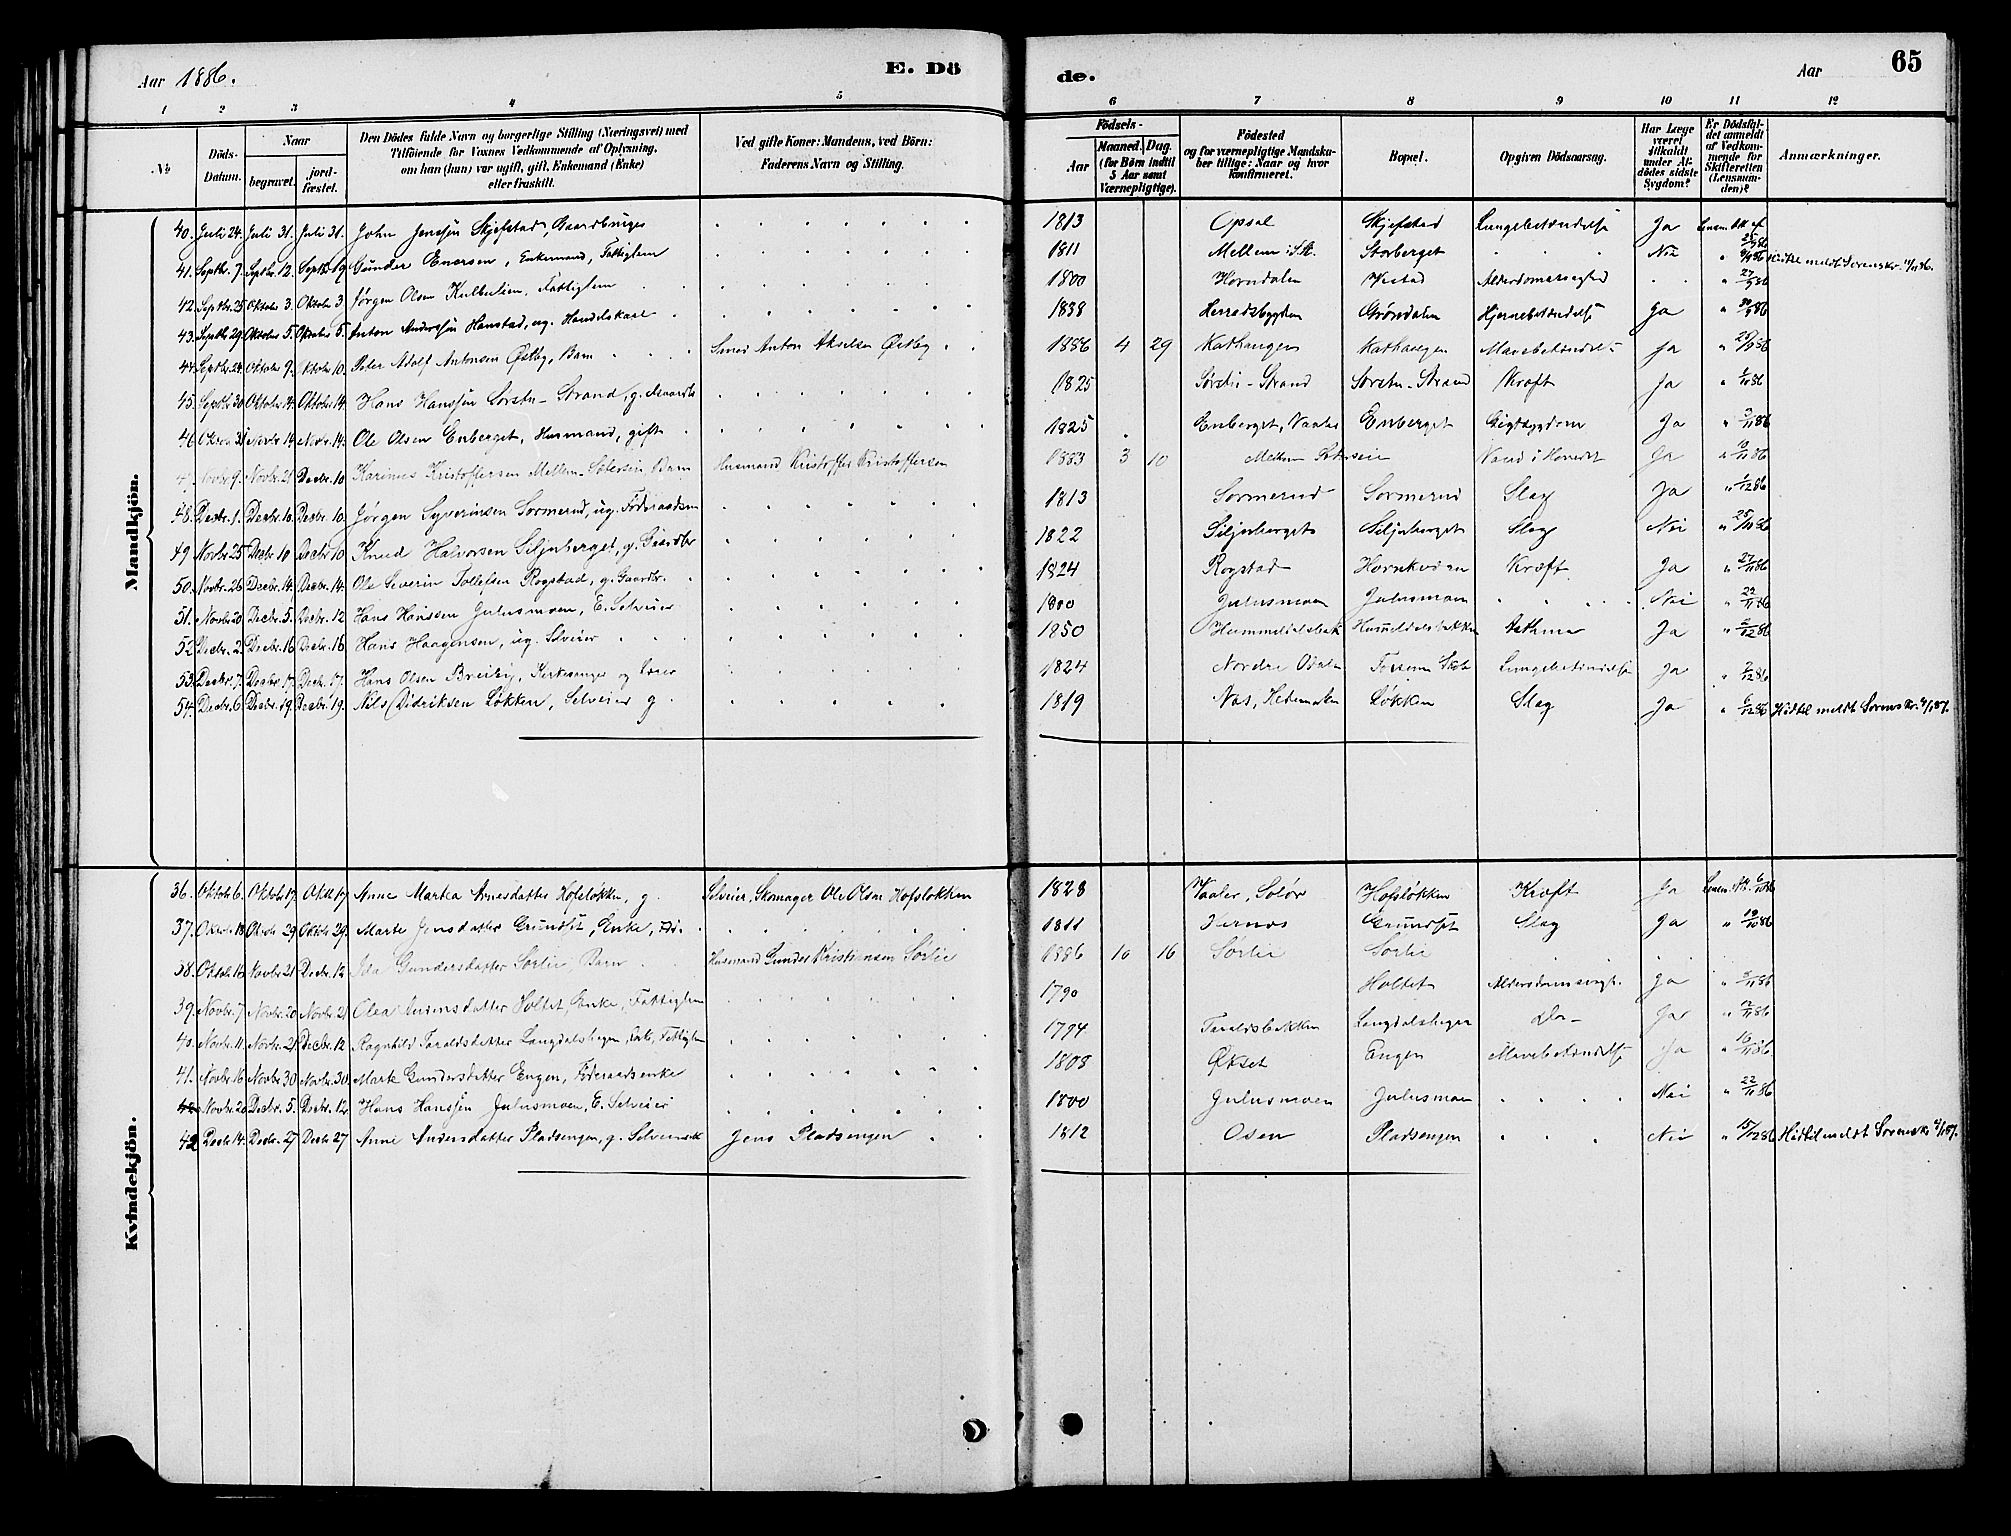 Aar 1886. E. Dö de. Aar 65
1 2 3 4 5 6 7 8 9 10 11 12
№ Döds-Datum. Naar begravet. jordfæstet. Den Dödes fulde Navn og borgerlige Stilling (Næringsvei) med Tilföiende for Voxnes Vedkommende af Oplysning, om han (hun) var ugift, gift, Enkemand (Enke) eller fraskilt. Ved gifte Koner: Mandens, ved Börn: Faderens Navn og Stilling. Födsels- Aar Maaned. Dag. (for Börn indtil 5 Aar samt Værnepligtige). Födested og for værnepligtige Mandskaber tillige: Naar og hvor konfirmeret. Bopæl. Opgiven Dödsaarsag. Har Læge været tilkaldt under Afdödes sidste Sygdom? Er Dödsfaldet anmeldt af Vedkommende for Skifteretten (Lensmanden)? Anmærkninger.
Mandkjön.
40. Juli 24. Juli 31. Juli 31. John Jenssen Skjefstad, Gaardbruger 1813 Opsal Skjefstad Lungebetændelse Ja
41. Septbr. 7. Septbr. 12. Septbr. 19. Gunder Enersen, Enkemand, Fattiglem 1811 Storberget Nei
42. Septbr. 25 Oktobr. 3. Oktobr. 3 Jørgen Olsen Kulbulien, Fattiglem 1800 Horndalen Alderdomssvaghed
43. Septbr. 29. Oktobr. 5. Oktobr. 5. Anton Anderssen Hanstad, ug. 1838 Herredsbygden Grøndalen Hjernebetændelse Ja
44. Septbr. 24. Oktobr. 9. Oktobr. 10. Peter Adolf Antonsen Østby, Barn Smed Anton Akselsen Østby 1886 4 29 Kathaugen Kathaugen Mavebetændelse Ja
45. Septbr. 30 Oktobr. 14. Oktobr. 14 Hans Hanssen Sørstu-Strand, g. Gaardbr. 1825 Sørstu-Strand Sørstu-Strand Kræft Ja
46. Novbr. 14. Novbr. 14. Ole Olsen Enberget, Husmand, gift 1825 Enberget, Enberget Gigtsygdom Ja
Novbr. 9. Novbr. 21 Decbr. 10 Karinus Kristoffersen Barn Husmand Kristoffer Kristoffersen 1883 3 10 Vand i Hovedet Ja
48. Decbr. 1. Decbr. 10. Decbr. 10. Jørgen Syverinsen Sormerud, ug. Føderaadsm 1813 Sormerud Sormerud Slag Ja
49. Novbr. 25 Decbr. 10 Decbr. 10 Knud Halvorsen Siljuberget, g. Gaardbr 1822 Siljuberget Siljuberget Slag Nei
50. Novbr. 26 Decbr. 14. Decbr. 14. Ole Severin Tollefsen Rogstad, g. Gaardbr. 1824 Rogstad Kræft Ja
51. Novbr. 20 Decbr. 5. Decbr. 12 Hans Hanssen Julusmoen, E. Selveier 1800 Julusmoen Julusmoen Nei
52 Decbr. 2. Decbr. 16 Decbr. 16 Hans Haagensen, ug. Selveier 1850 Asthma Ja
53. Decbr. 7. Decbr. 17. Decbr. 17. Hans Olsen Breiby, Kirkesanger og Lærer 1824 Nordre Odalen Lungebetændelse Ja
54. Decbr. 6 Decbr. 19. Decbr. 19. Nils Didriksen Løkken, Selveier g. 1819 Nes, Hedemarken Løkken Slag Ja Hidtil meldt Sorenskr.
Kvindekjön.
36. Oktobr. 6. Oktobr. 17 Oktb. 17 Anne Martea Arnesdatter Hofsløkken, g. Selveier, Skomager Ole Olsen Hofsløkken 1828 Vaaler, Solør Hofsløkken Kræft Ja
37. Oktobr. 18 Oktobr. 29 Oktobr. 29. Marte Jensdatter Grundset, Enke, 1811 Grundset Slag Ja
38. Oktobr. 16 Novbr. 21 Decbr. 12 Ida Gundersdatter Sørlie, Barn Husmand Gunder Kristiansen Sørlie 1886 10 16 Sørlie Sørlie
39. Novbr. 7 Novbr. 20 Novbr. 21 Olea Holtet, Enke, Fattiglem 1790 Holtet Alderdomssvagh. Ja
40. Novbr. 11. Novbr. 21 Decbr. 12 Ragnhild Taraldsdatter Langdalshagen, Enke, Fattiglem 1794 Taraldsbakken Langdalshagen Do- Ja
41. Novbr. 16 Novbr. 30 Novbr. 30. Marte Gundersdatter Engen, Føderaadsenke 1808 Økset Engen Mavebetændelse Ja
Novbr. 20 Decbr. 5. Decbr. 12 Hans Hanssen Julusmoen, E. Selveier 1800 Julusmoen Julusmoen Nei
42 Decbr. 14. Decbr. 27 Decbr. 27 Anne Andersdatter Pladsengen, g. Jens Pladsengen 1812 Osen Pladsengen Nei Hidtil meldt Sorenskr.